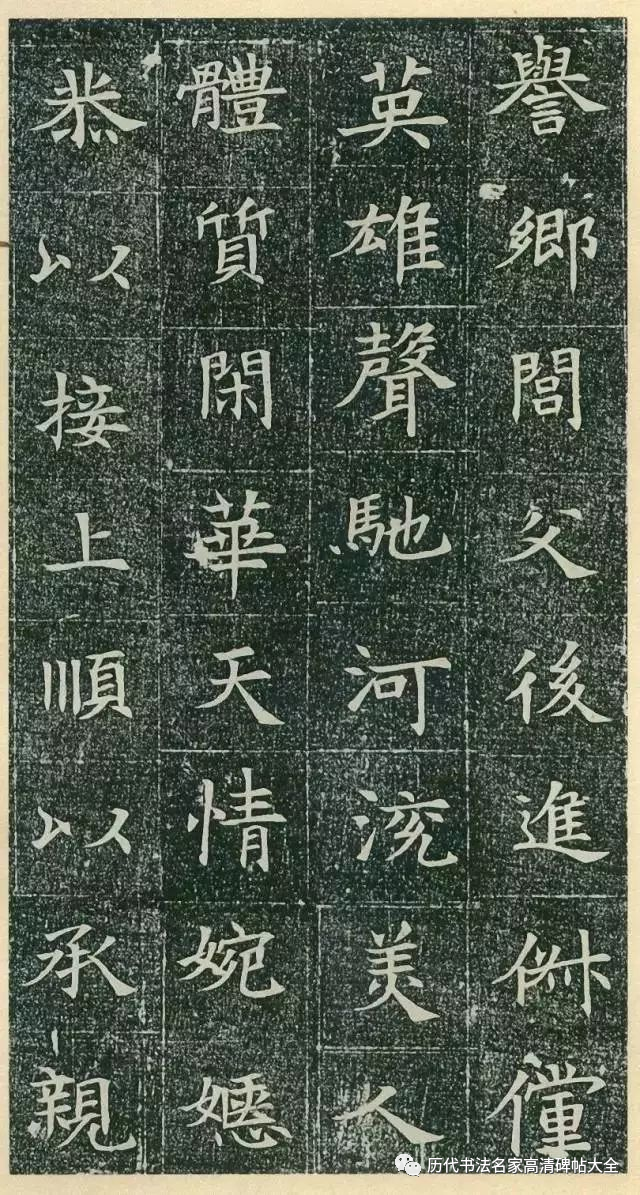 譽鄉閭父後進俶儻
英雄聲馳河渷美人
體質閑華天情婉嫕
恭以接上順以承親
历代书法名家高清碑帖大全